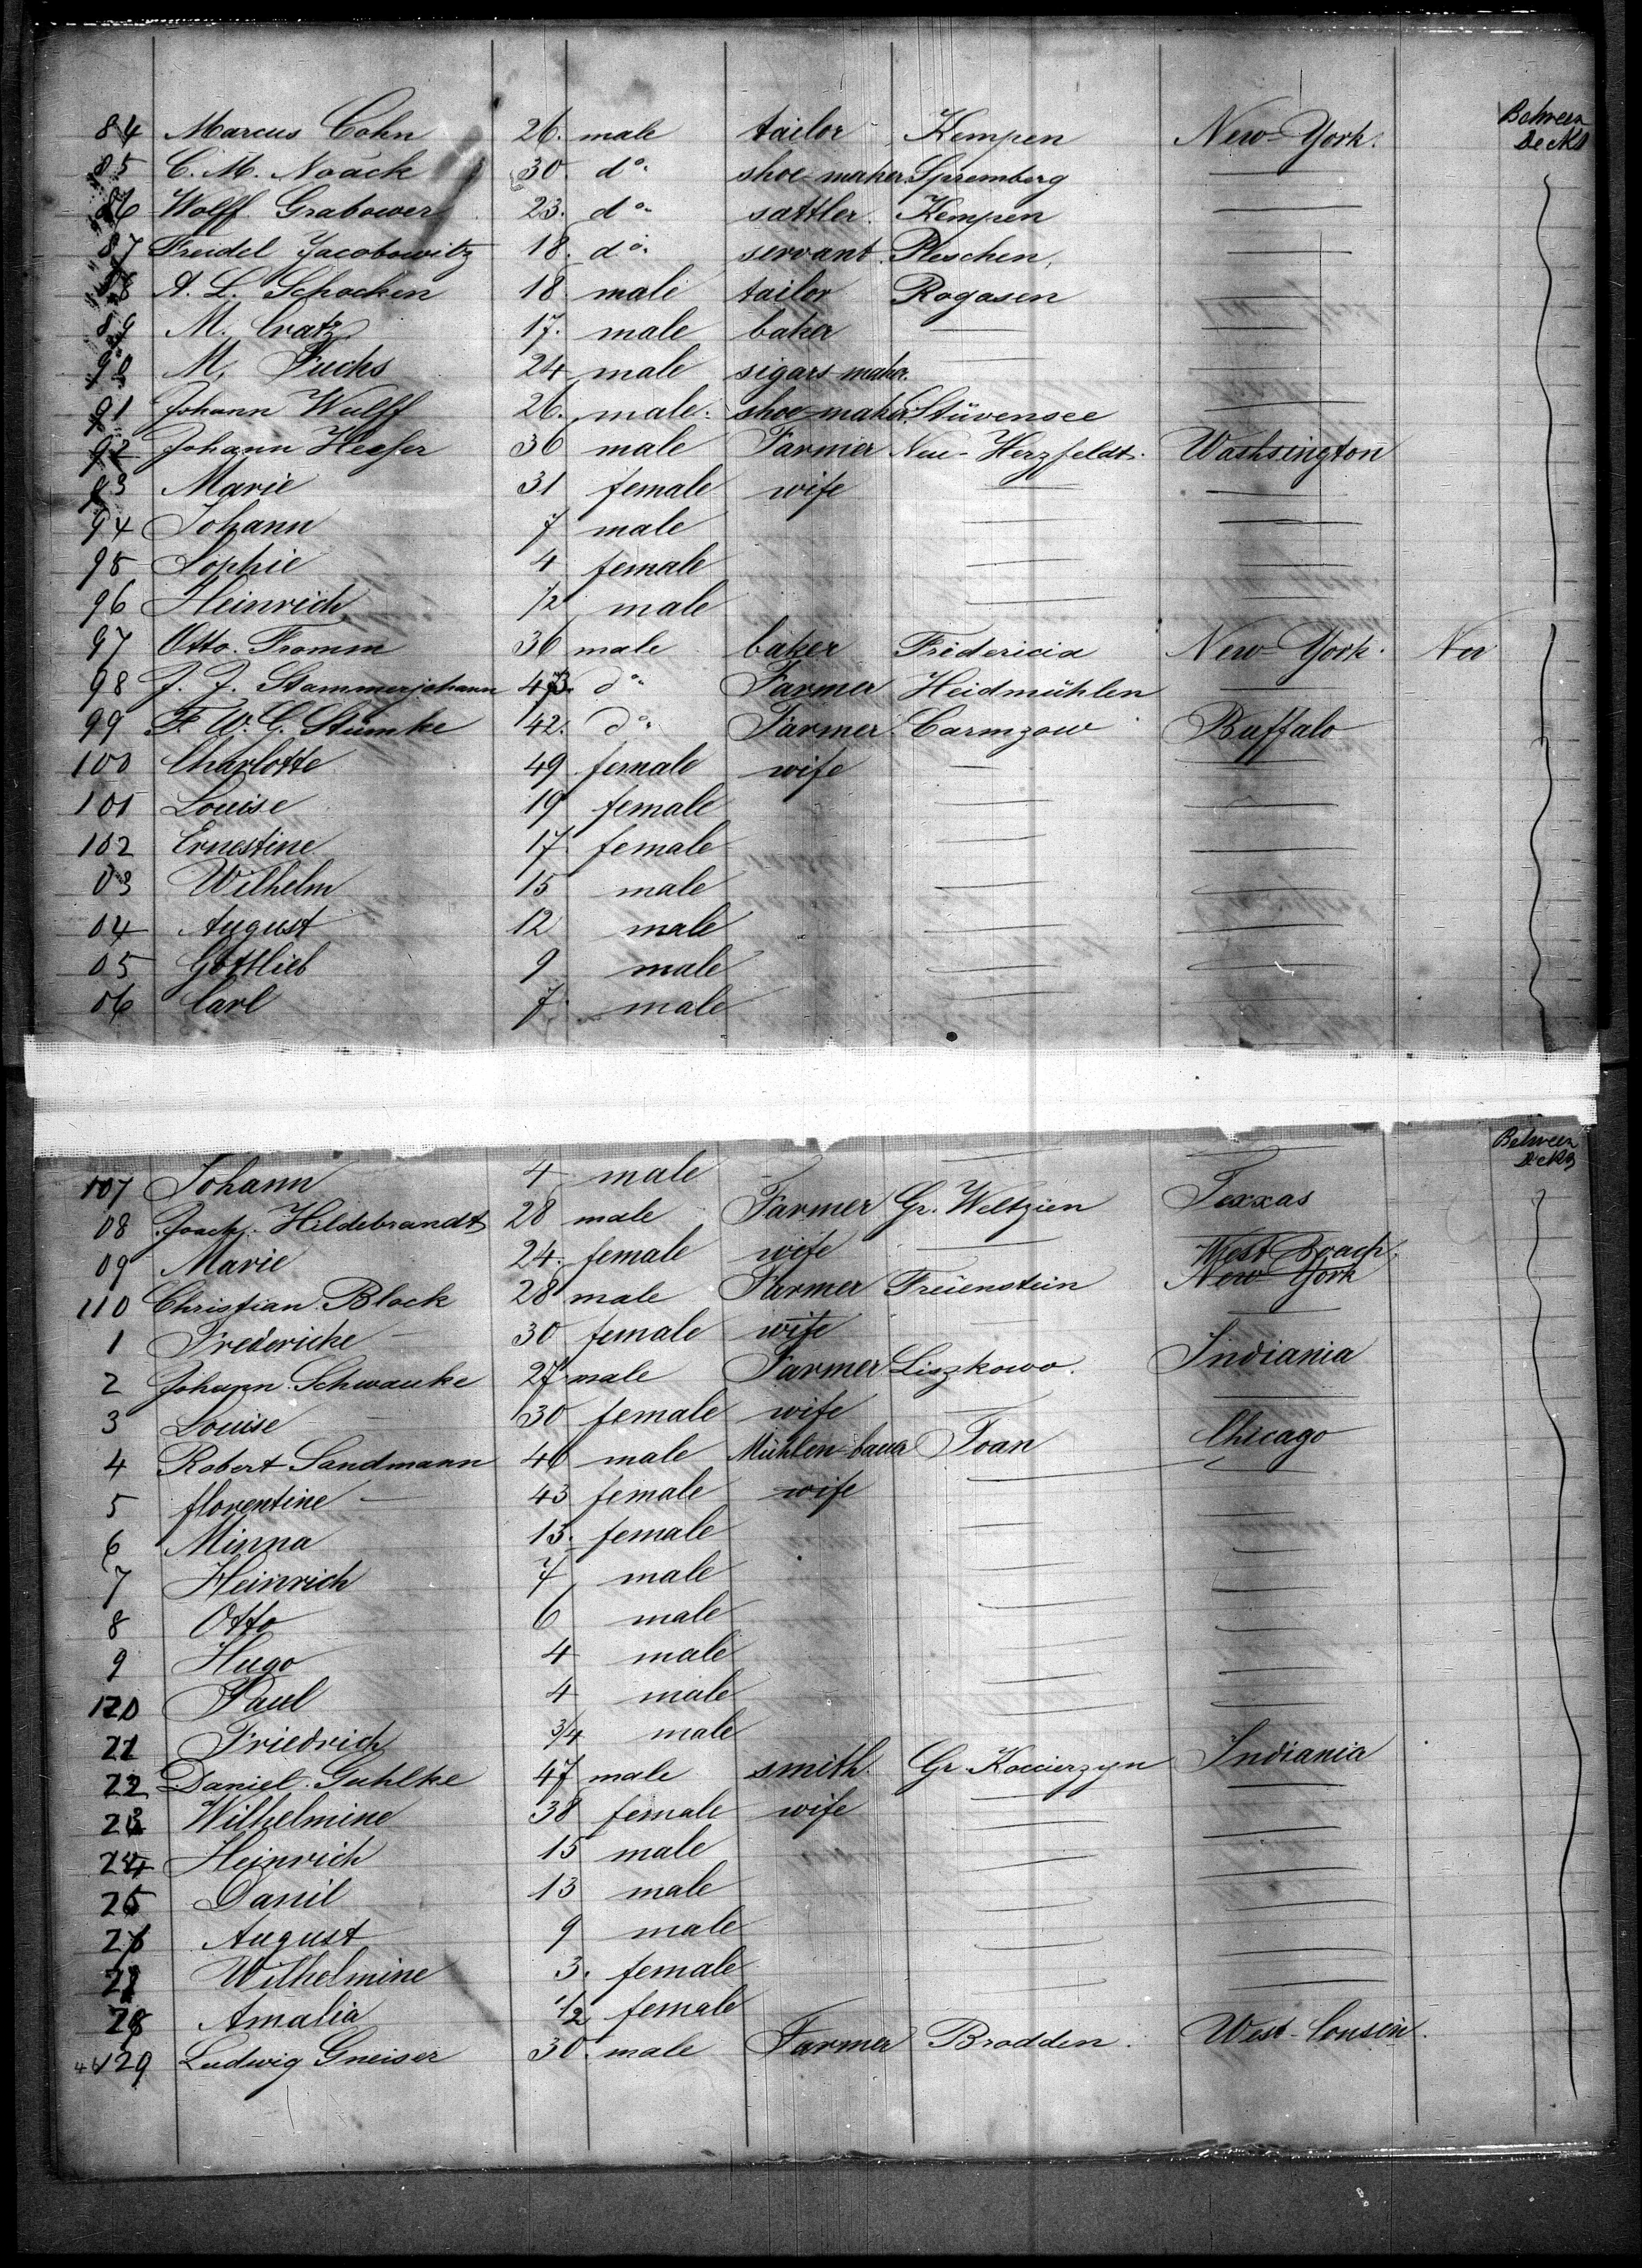 Between Decks
84 Marcus Cohn 26. male tailor Kempen New-York.
85 C. M. Noack 30. do. shoe-maker Spremberg —
86 Wolff Grabower 23. do. sattler. Kempen —
87 Freidel Jacobowitz 18. do. servant Pleschen, —
88 A. L. Schocken 18. male tailor Rogasen —
89 M. Cratz 17. male baker — —
90 M. Fuchs 24 male sigars-maker. — —
91 Johann Wulff 26. male. shoe-maker Stüvensee —
92 Johann Heefer 36 male Farmer Neu-Herzfeldt. Washsington
93 Marie 31 female wife — —
94 Johann 7 male — —
95 Sophie 4 female — —
96 Heinrich 1/2 male — —
97 Otto Fromm 36 male baker Fridericia New-York.
98 J. J. Stammerjohann 43. do. Farmer Heidmühlen —
99 F. W. G. Stümke 42. do. Farmer Carmzow Buffalo
100 Charlotte 49 female wife — —
101 Louise 19 female — —
102 Ernestine 17. female — —
03 Wilhelm 15 male — —
04 August 12 male — —
05 Gottlieb 9 male — —
06 Carl 7. male
Between Decks
107 Johann 4 male — —
08 Joach. Hildebrandt 28 male Farmer Gr. Weltzien Texxas
09 Marie 24. female wife — —
110 Christian Block 28 male Farmer Freienstein West New York
1 Fredericke — 30 female wife — —
2 Johann Schwanke 27 male Farmer Liszkowo. Indiania
3 Louise — 30 female wife — —
4 Robert Sandmann 46 male Mühlen-bauer Toan Chicago
5 florentine — 43 female wife — —
6 Minna 13. female — —
7 Heinrich 7 male — —
8 Otto 6 male — —
9 Hugo 4 male — —
120 Paul 4 male — —
21 Friedrich 3/4 male — —
22 Daniel Guhlke 47 male smith. Gr. Kocierzyn Indiania
23 Wilhelmine 38 female wife — —
24 Heinrich 15 male — —
25 Danil 13 male — —
26 August 9 male — —
27 Wilhelmine 3. female — —
28 Amalia 1/2 female — —
129 Ludwig Gneiser 30. male Farmer Brodden. West-Consin.